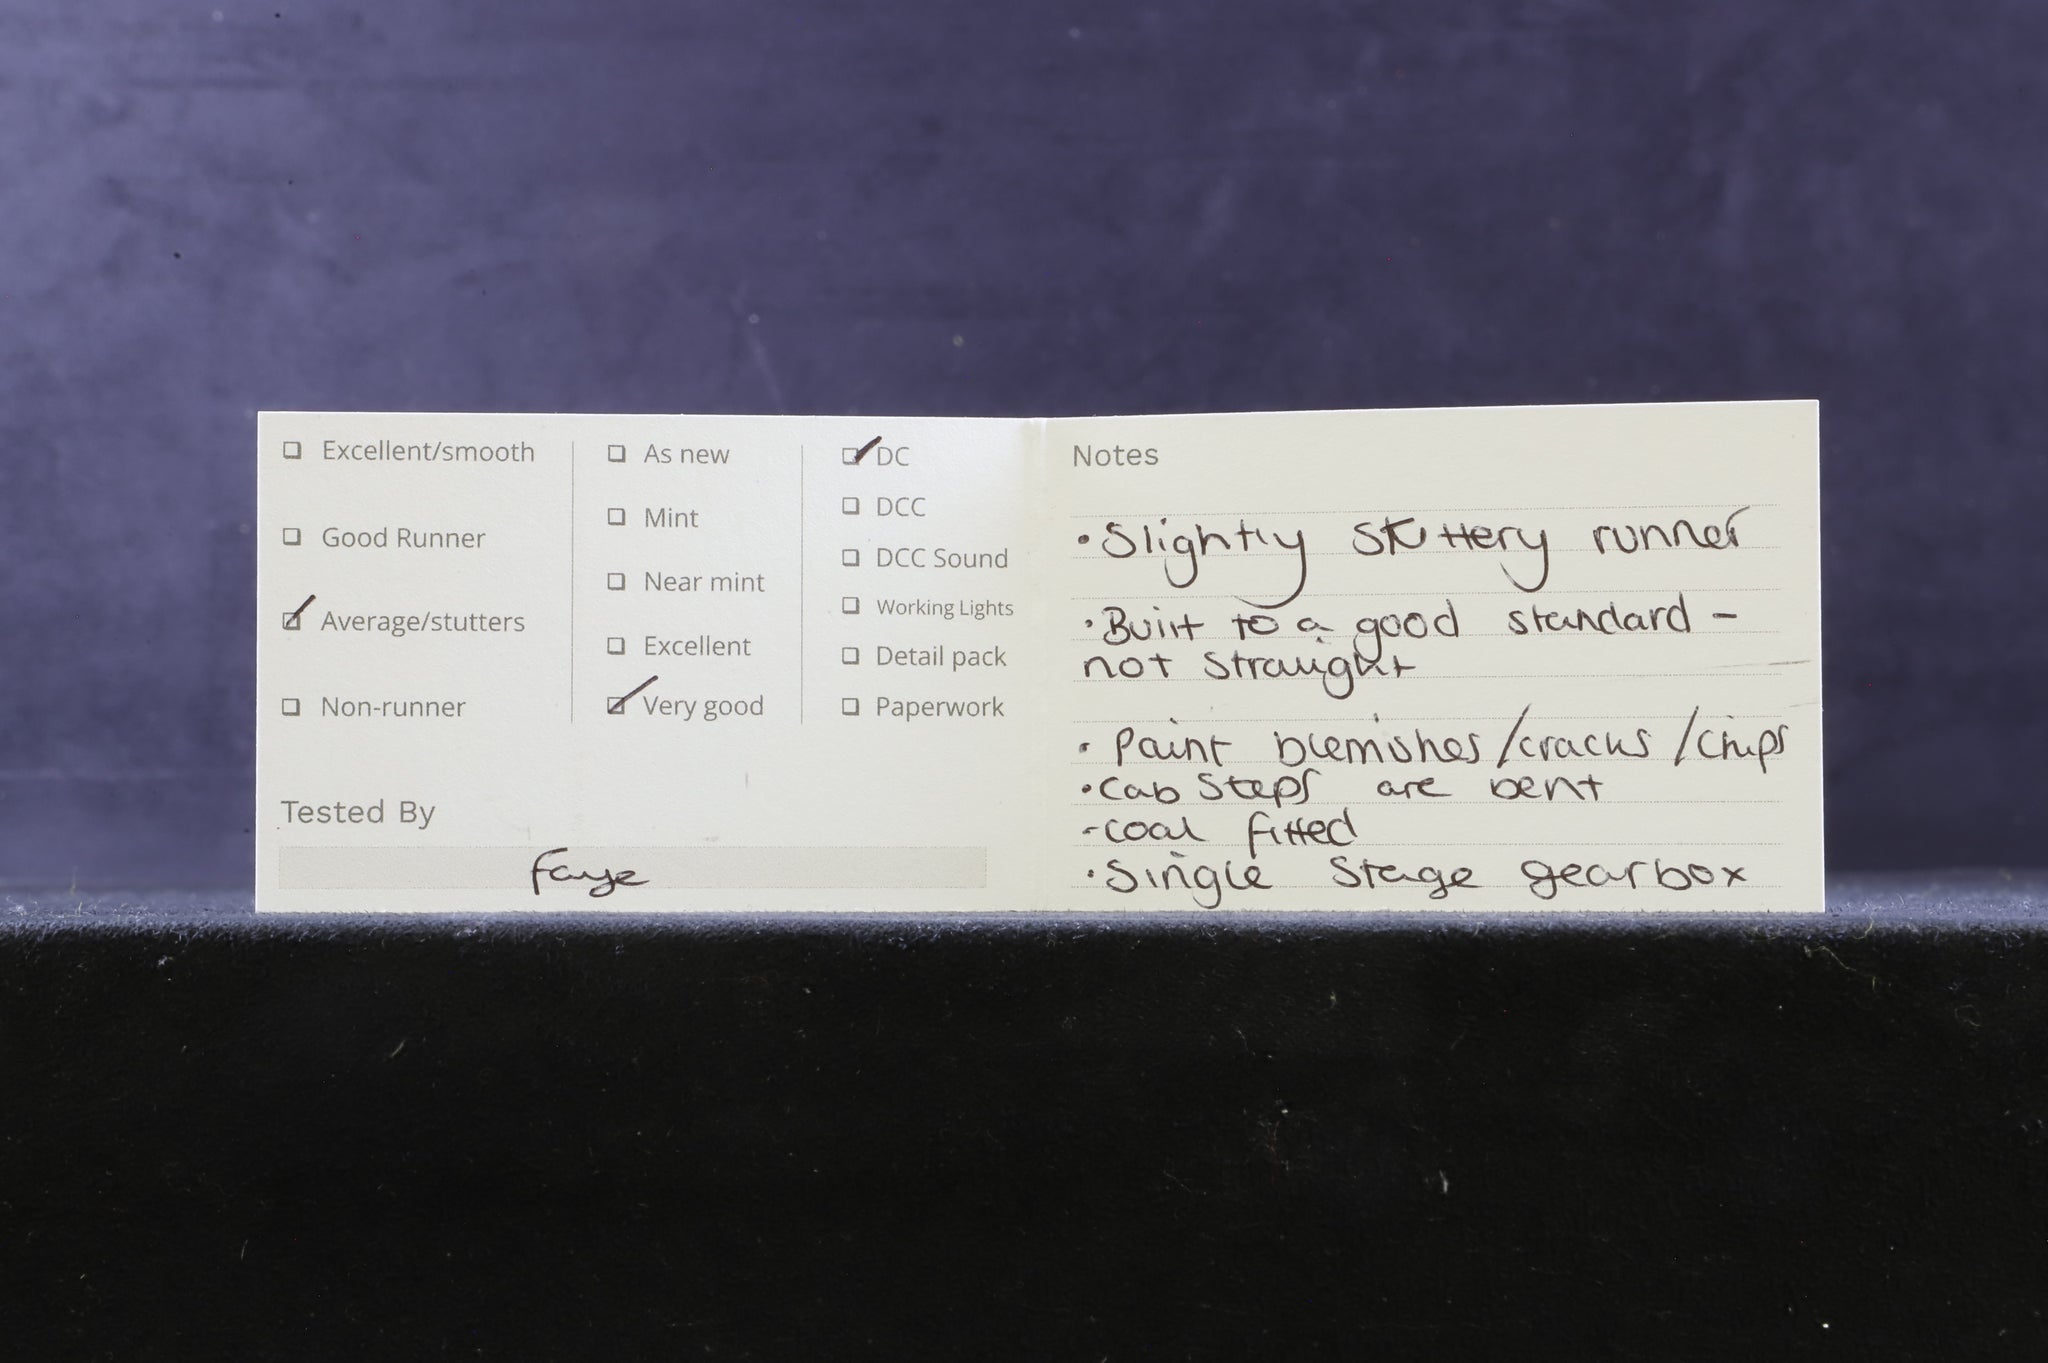 Excellent/smooth
Good Runner
Average/stutters
Non-runner
As new
Mint
Near mint
Excellent
Very good
DC
DCC
DCC Sound
Working Lights
Detail pack
Paperwork
Tested By
Faye
Notes
• Slightly stuttery runner
• Built to a good standard -
not straight
• Paint blemishes/cracks/chips
• Cab steps are bent
- coal fitted
• Single stage gearbox